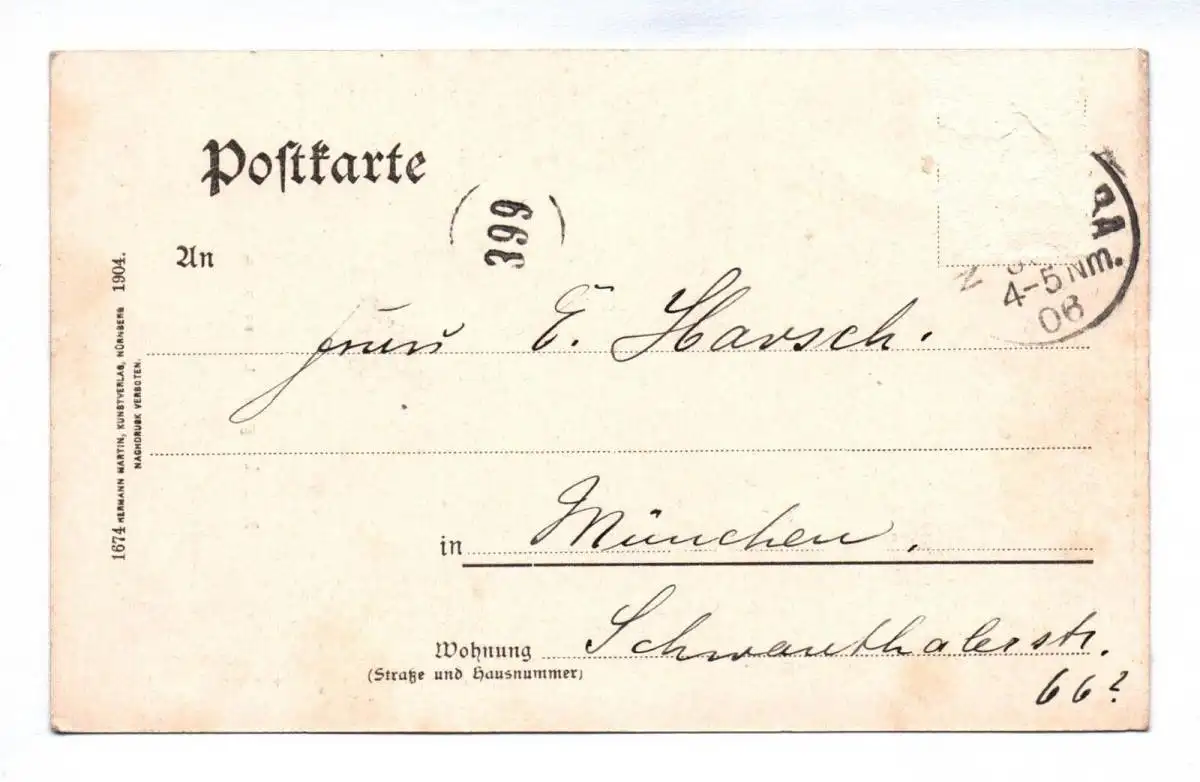 Postkarte
399
An
Herrn E. Harsch.
4-5 Nm.
06
in München,
Wohnung Schwanthalerstr.
(Straße und Hausnummer)
66²
1674 HERMANN MARTIN, KUNSTVERLAG, NÜRNBERG 1904.
NACHDRUCK VERBOTEN.